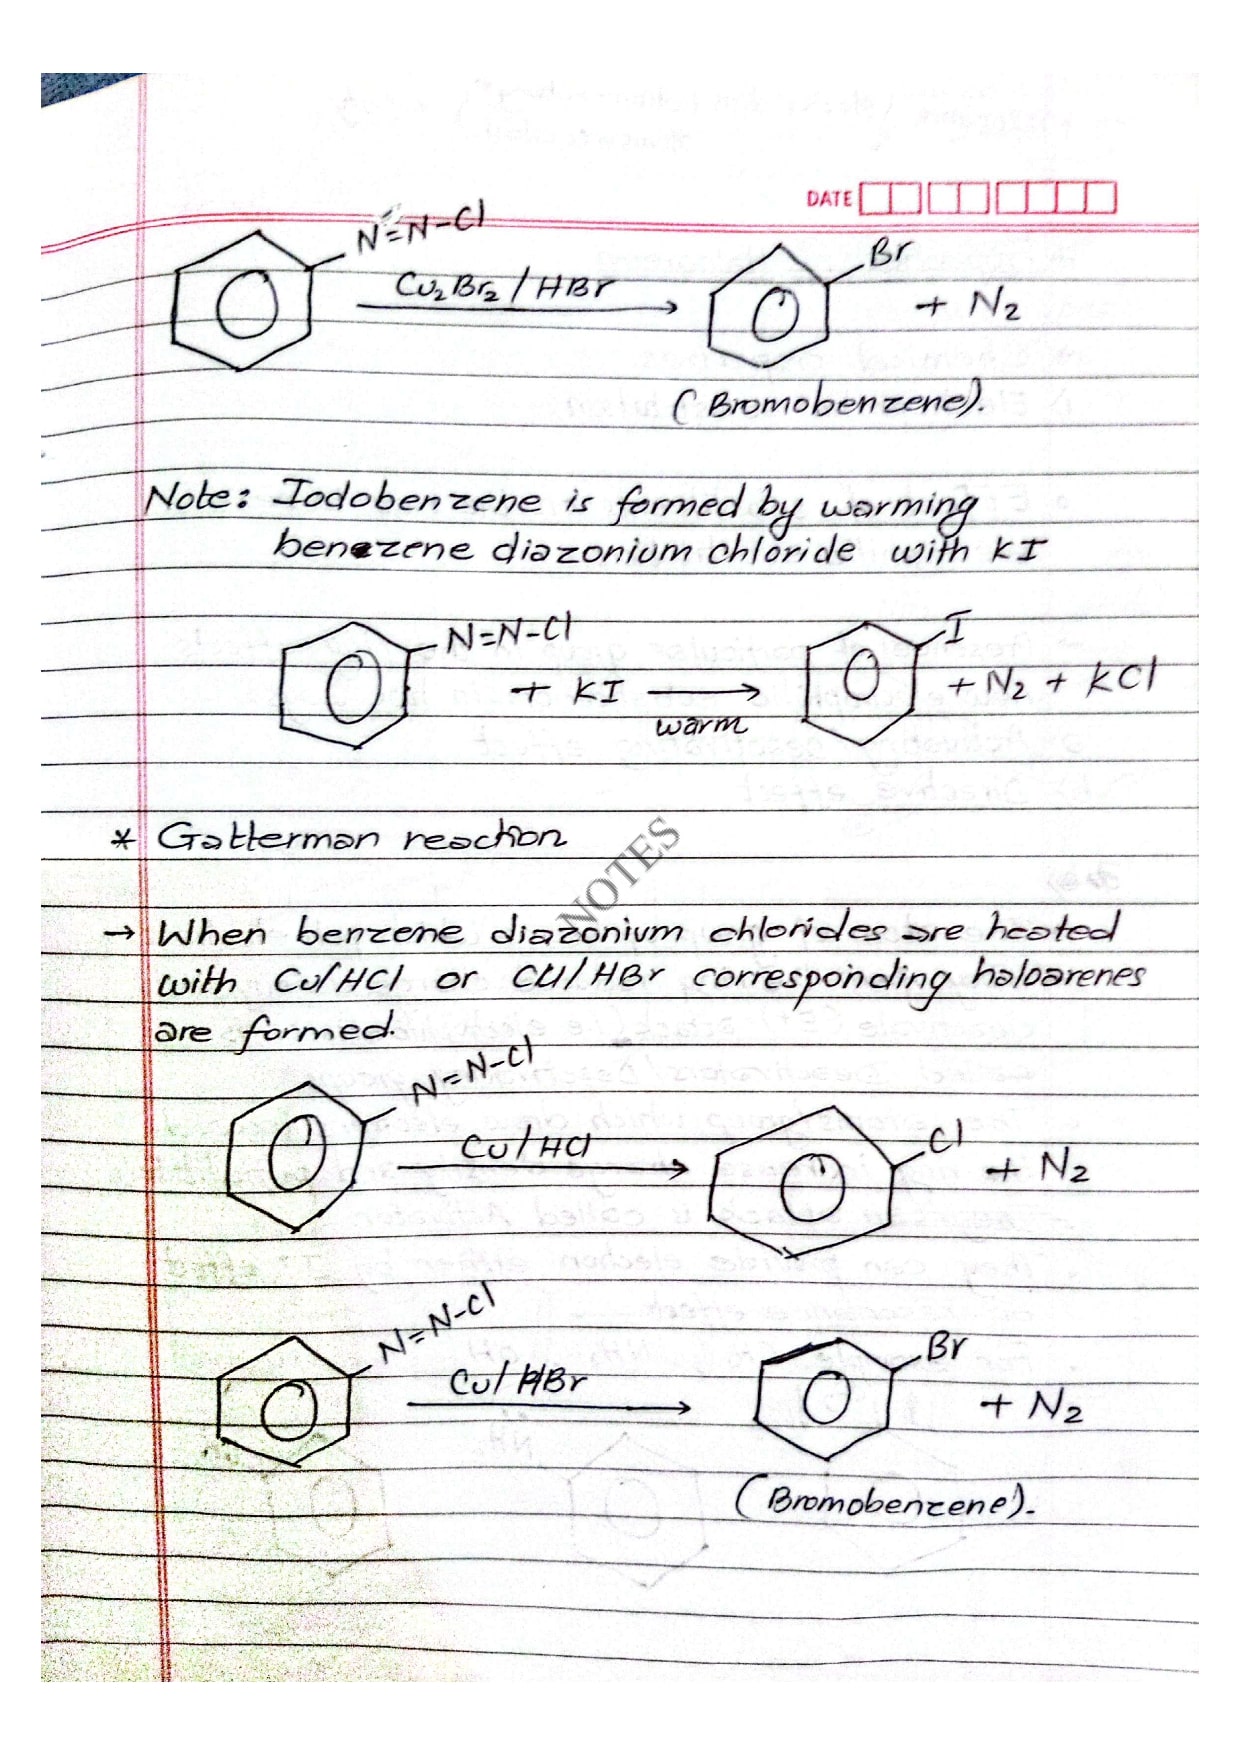 DATE
N=N-Cl
Cu₂Br₂ / HBr
Br
+ N₂
(Bromobenzene).
Note: Iodobenzene is formed by warming
benezene diazonium chloride with KI
N=N-Cl
+ KI
warm
I
+ N₂ + KCl
* Gatterman reaction
NOTES
→ When benzene diazonium chlorides are heated
with Cu/HCl or CU/HBr corresponding haloarenes
are formed.
N=N-Cl
Cu/HCl
Cl
+ N₂
N=N-Cl
Cu/HBr
Br
+ N₂
(Bromobenzene).